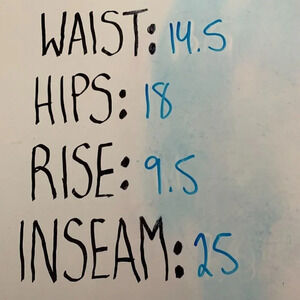 WAIST: 14.5
HIPS: 18
RISE: 9.5
INSEAM: 25